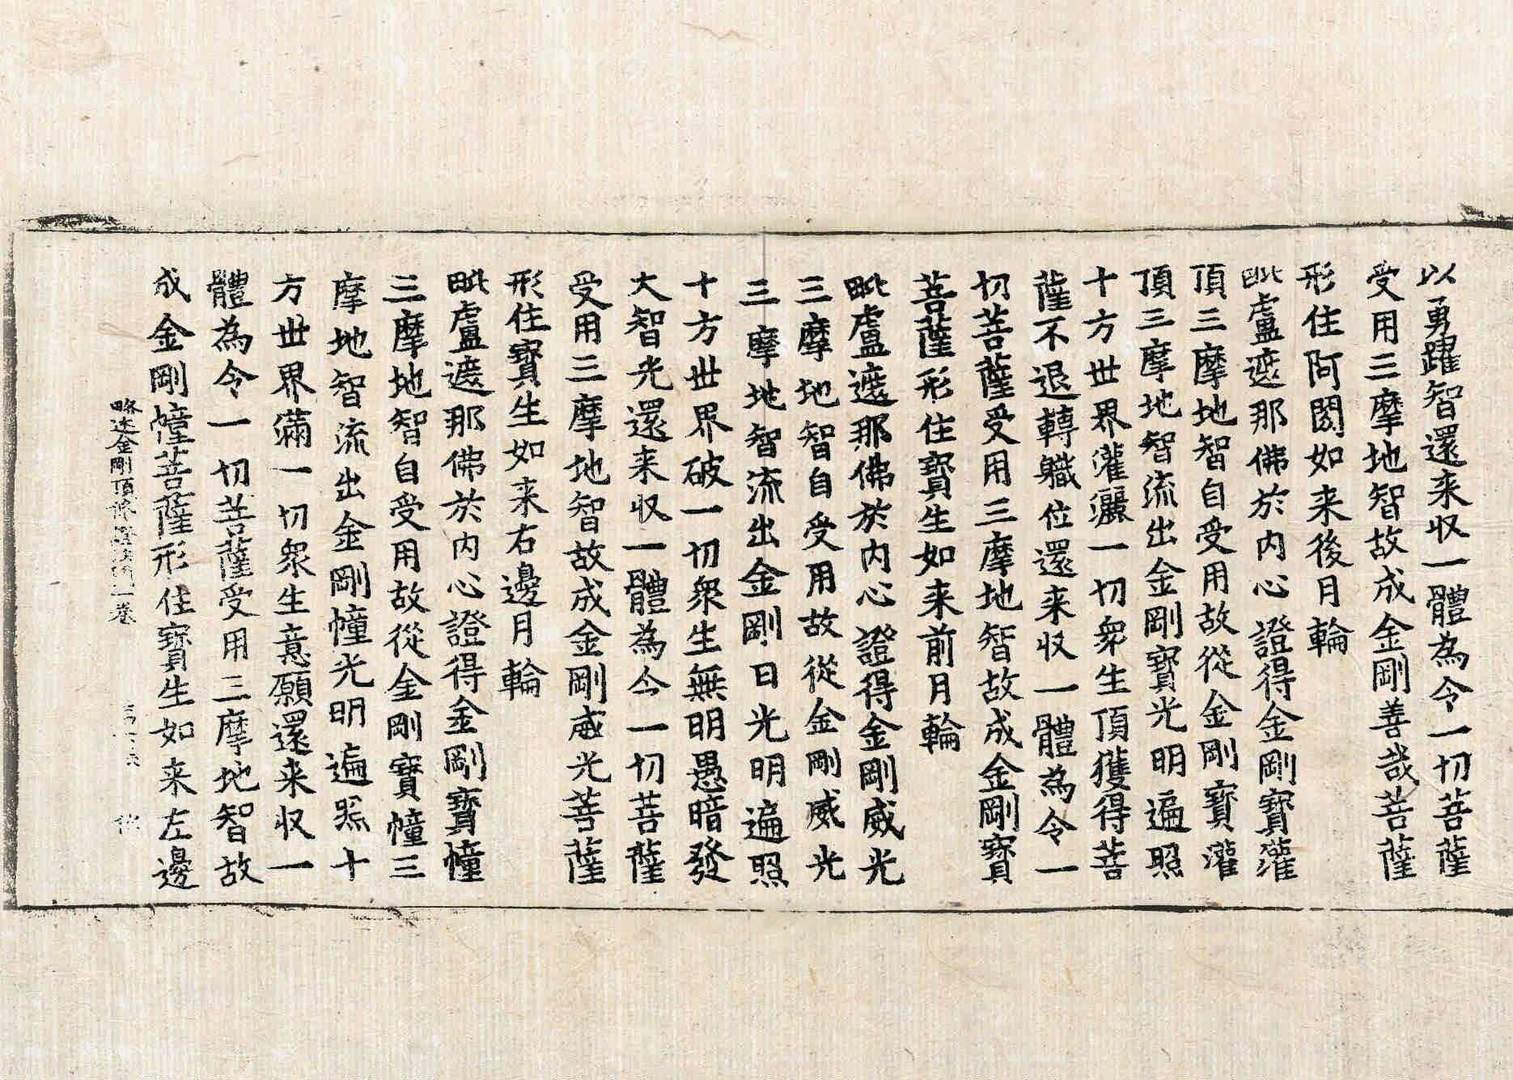 以勇躍智還来収一體為令一切菩薩
受用三摩地智故成金剛善哉菩薩
形住阿閦如来後月輪
毗盧遮那佛於内心證得金剛寶灌
頂三摩地智自受用故從金剛寶灌
頂三摩地智流出金剛寶光明遍照
十方丗界灌灑一切衆生頂獲得菩
薩不退轉軄位還来収一體為令一
切菩薩受用三摩地智故成金剛寶
菩薩形住寶生如来前月輪
毗盧遮那佛於内心證得金剛威光
三摩地智自受用故從金剛威光
三摩地智流出金剛日光明遍照
十方丗界破一切衆生無明愚暗發
大智光還来収一體為令一切菩薩
受用三摩地智故成金剛威光菩薩
形住寶生如来右邊月輪
毗盧遮那佛於内心證得金剛寶幢
三摩地智自受用故從金剛寶幢三
摩地智流出金剛幢光明遍炤十
方丗界滿一切衆生意願還来収一
體為令一切菩薩受用三摩地智故
成金剛幢菩薩形住寶生如来左邊
略述金剛頂 一卷